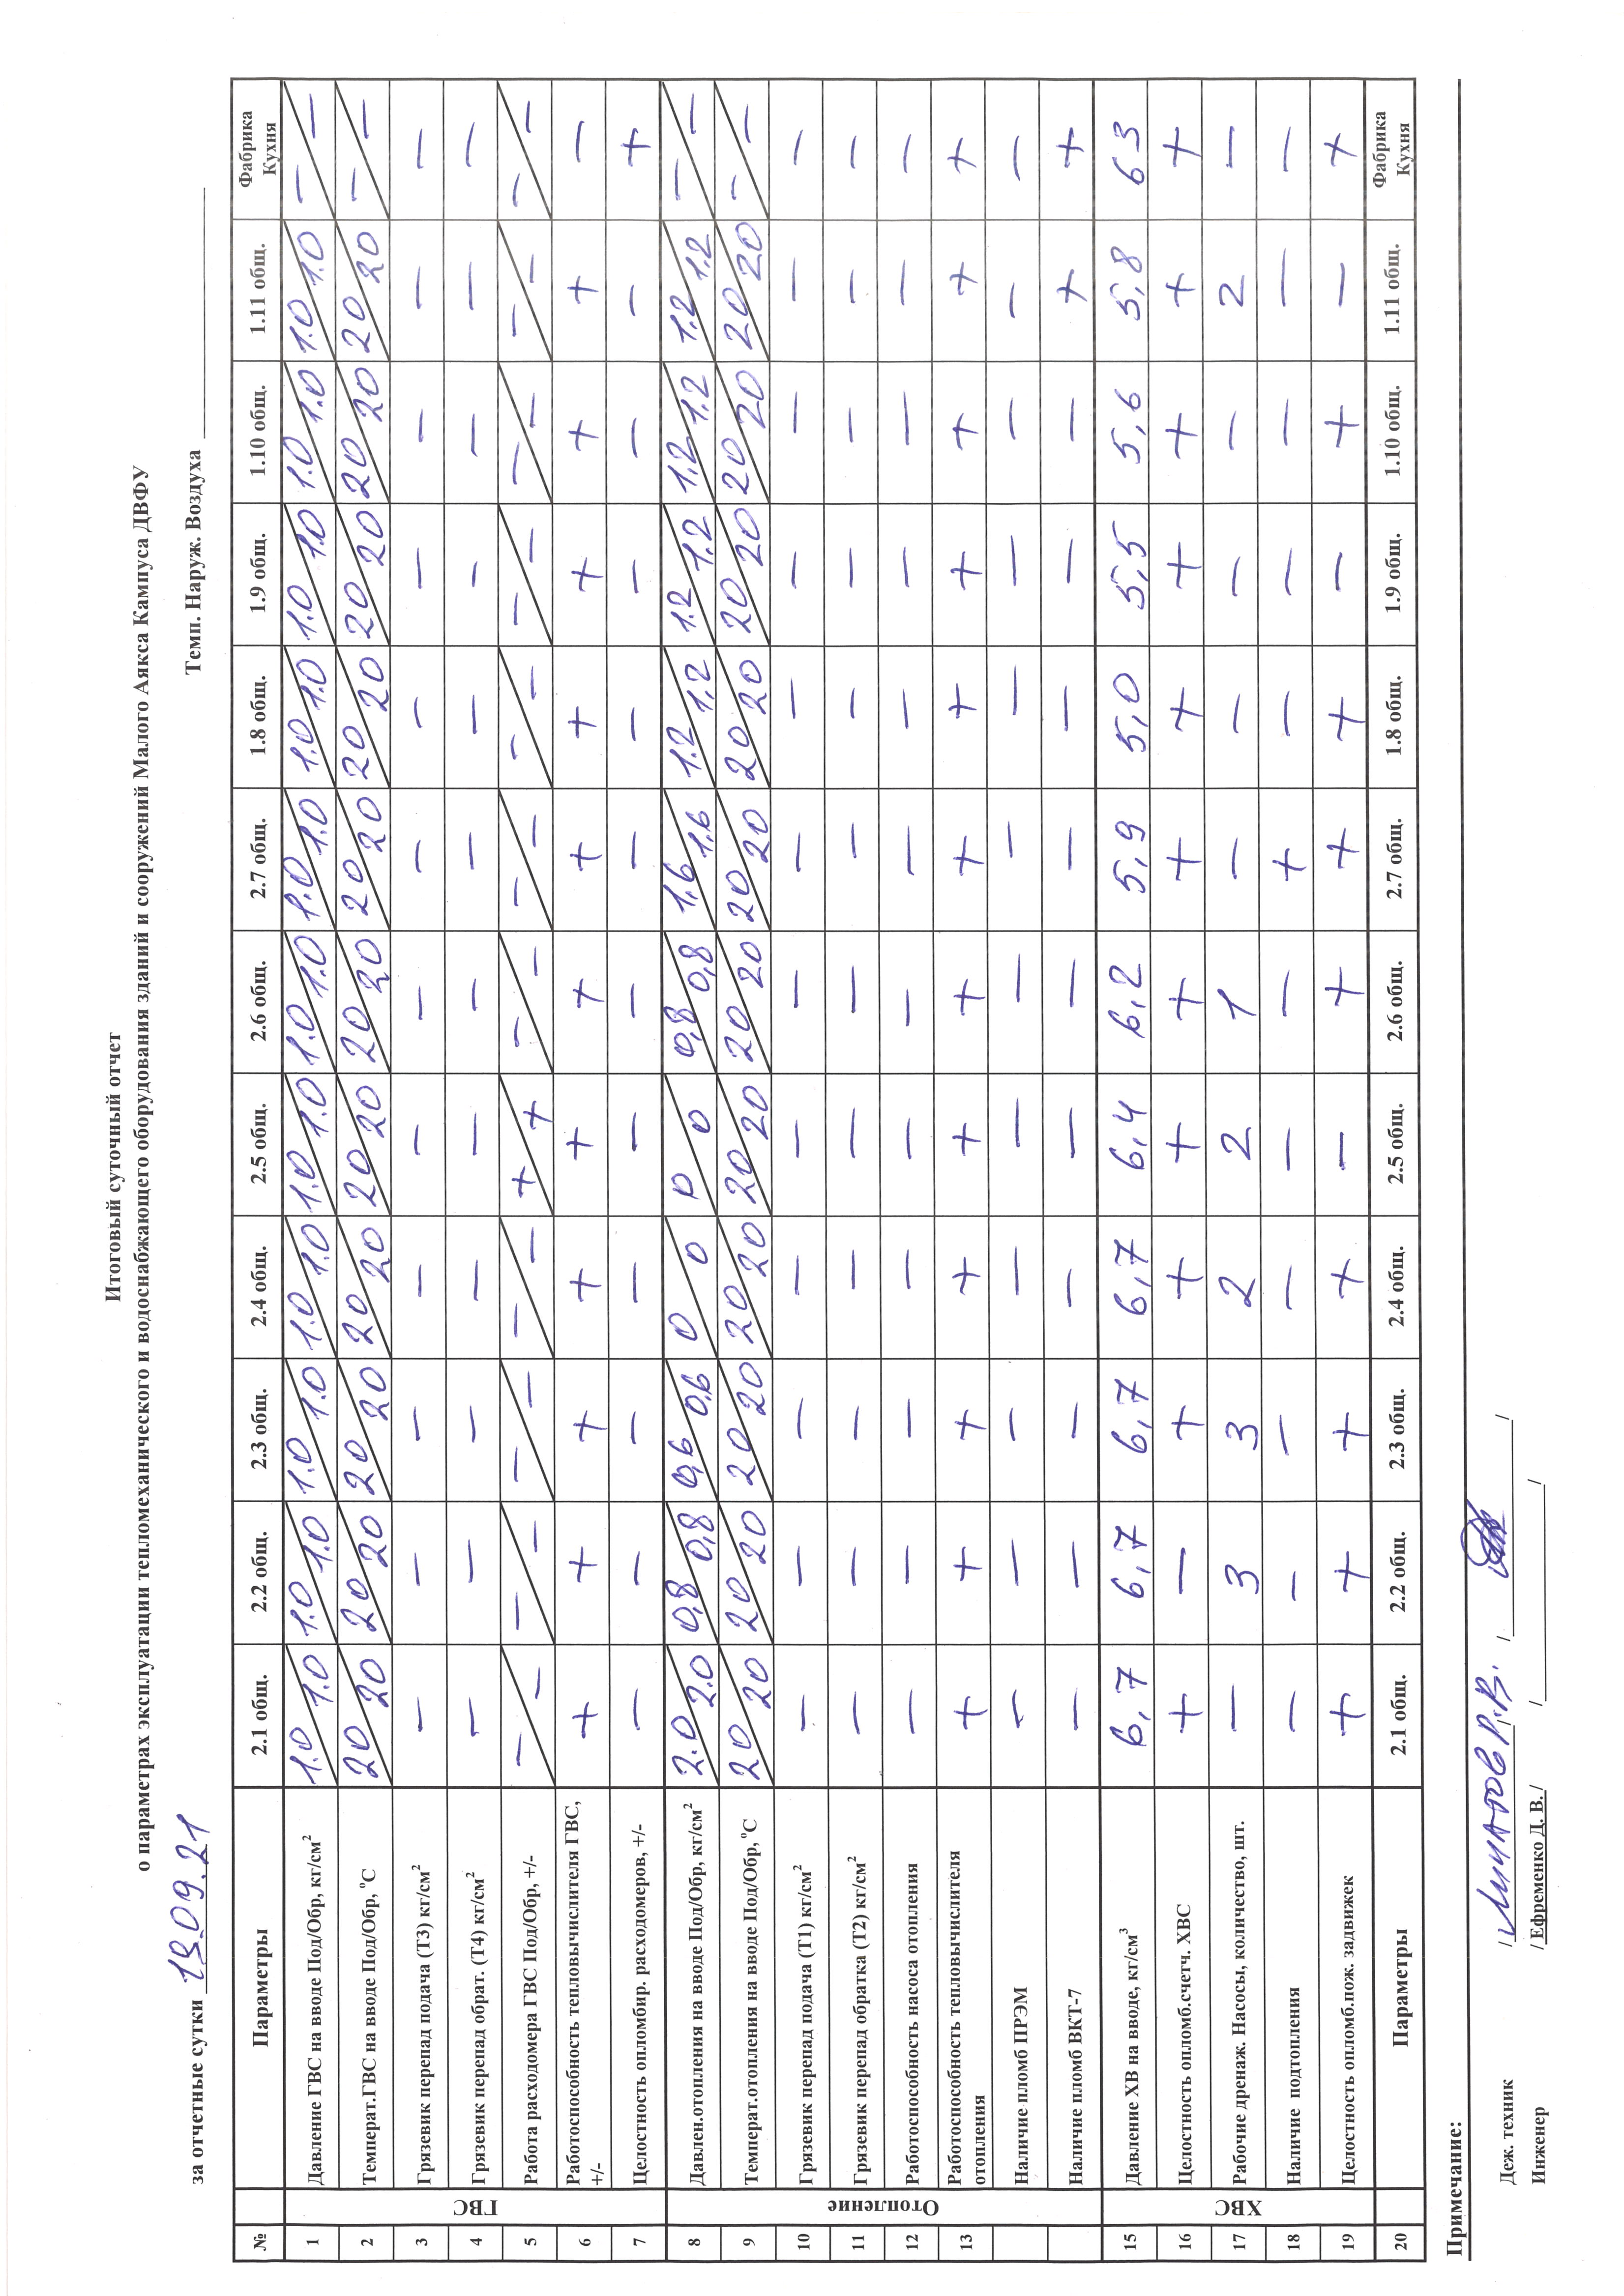 Итоговый суточный отчет
о параметрах эксплуатации тепломеханического и водоснабжающего оборудования зданий и сооружений Малого Аякса Кампуса ДВФУ
за отчетные сутки 19.09.21 Темп. Наруж. Воздуха
№ Параметры 2.1 общ. 2.2 общ. 2.3 общ. 2.4 общ. 2.5 общ. 2.6 общ. 2.7 общ. 1.8 общ. 1.9 общ. 1.10 общ. 1.11 общ. Фабрика Кухня
ГВС
1 Давление ГВС на вводе Под/Обр, кг/см² 1.0/1.0 1.0/1.0 1.0/1.0 1.0/1.0 1.0/1.0 1.0/1.0 1.0/1.0 1.0/1.0 1.0/1.0 1.0/1.0 1.0/1.0 –/–
2 Температ.ГВС на вводе Под/Обр, °С 20/20 20/20 20/20 20/20 20/20 20/20 20/20 20/20 20/20 20/20 20/20 –/–
3 Грязевик перепад подача (Т3) кг/см² – – – – – – – – – – – –
4 Грязевик перепад обрат. (Т4) кг/см² – – – – – – – – – – – –
5 Работа расходомера ГВС Под/Обр, +/- –/– –/– –/– –/– +/+ –/– –/– –/– –/– –/– –/– –/–
6 Работоспособность тепловычислителя ГВС, +/- + + + + + + + + + + + –
7 Целостность опломбир. расходомеров, +/- – – – – – – – – – – – +
Отопление
8 Давлен.отопления на вводе Под/Обр, кг/см² 2.0/2.0 0,8/0,8 0,6/0,6 0/0 0/0 0,8/0,8 1,6/1,6 1.2/1,2 1.2/1,2 1,2/1,2 1,2/1,2 –/–
9 Температ.отопления на вводе Под/Обр, °С 20/20 20/20 20/20 20/20 20/20 20/20 20/20 20/20 20/20 20/20 20/20 –/–
10 Грязевик перепад подача (Т1) кг/см² – – – – – – – – – – – –
11 Грязевик перепад обратка (Т2) кг/см² – – – – – – – – – – – –
12 Работоспособность насоса отопления – – – – – – – – – – – –
13 Работоспособность тепловычислителя отопления + + + + + + + + + + + +
Наличие пломб ПРЭМ – – – – – – – – – – – –
Наличие пломб ВКТ-7 – – – – – – – – – – + +
ХВС
15 Давление ХВ на вводе, кг/см³ 6,7 6,7 6,7 6,7 6,4 6,2 5,9 5,0 5,5 5,6 5,8 63
16 Целостность опломб.счетч. ХВС + – + + + + + + + + + +
17 Рабочие дренаж. Насосы, количество, шт. – 3 3 2 2 1 – – – – 2 –
18 Наличие подтопления – – – – – – + – – – – –
19 Целостность опломб.пож. задвижек + + + + – + + + – + – +
20 Параметры 2.1 общ. 2.2 общ. 2.3 общ. 2.4 общ. 2.5 общ. 2.6 общ. 2.7 общ. 1.8 общ. 1.9 общ. 1.10 общ. 1.11 общ. Фабрика Кухня
Примечание:
Деж. техник / Р.В. / / /
Инженер / Ефременко Д. В. / / /